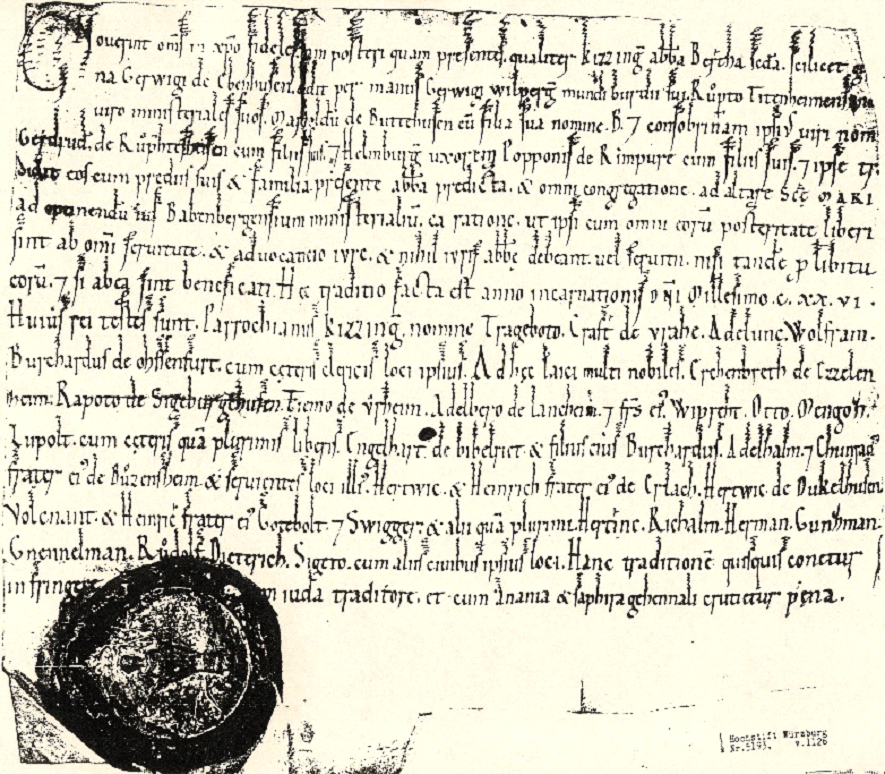 Noverint om̄s in xp̄o fideles tam posteri quam presentes. qualiter kizzinḡ abb̄a Bertha sedā. scilicet
na Gerwigi de Ebenhusen. dedit per manus Gerwigi wilperḡ mundiburdii sui. Růpto Titenheimensi
viro ministeriales suos. Mathildū de Buttehusen cū filia sua nomine. B. ⁊ consobrinam ipsius viri nom
Gerdrud. de Růphteshusen cum filiis suis. ⁊ Helmburḡ uxorem Popponis de Rimpure cum filiis suis. ⁊ ipse tr
didit eos cum prediis suis & familia presente abb̄a predicta. & omni congregatione. ad altare Sc̄e MARI
ad optinendū ius Babenbergensium ministerialiū. ea ratione. ut ipsi cum omni eorū posteritate liberi
sint ab omī servitute. & advocatico iure. & nihil iuris abbę debeant. vel servitii. nisi tandē p libitu
eorū. ⁊ si ab ea sint beneficati. Hęc traditio facta est anno incarnationis DN̄I Millesimo. c. xx. vi.
Huius rei testes sunt. Parrochianus kizzinḡ. nomine Trageboto. Craft de vrahe. Adelunc. Wolfram.
Burchardus de ohssenfurt. cum cęteris clericis loci ipsius. Ad hęc laici multi nobiles. Erchenbreth de Ezzelen
heim. Rapoto de Sigeburgehusen. Tiemo de vrheim. Adelbero de lancheim. ⁊ fr̄s ei'. Wiprecht. Otto. Mengoz.
Lupolt. cum cęteris quā plurimis liberis. Engelhart de bibelriet. & filius eius Burchardus. Adelhalm. ⁊ Chunrad'
frater ei' de Bůzensheim & servientes loci illi'. Hertwic. & Heinrich frater ei' de Erlach. Hertwic. de Dukelhusen
Volcnant. & Heinric frater ei' Gotebolt. ⁊ Swigger. & alii quā plurimi. Hertinc. Richalm. Herman. Gunthman.
Gnennelman. Růdolf. Dieterich. Sigero. cum aliis civibus ipsius loci. Hanc traditionē quisquis conetur
infringere iuda traditore. et cum Anania & saphira gehennali crucietur pęna.
Hochstift Würzburg
Nr.5193. v.1126